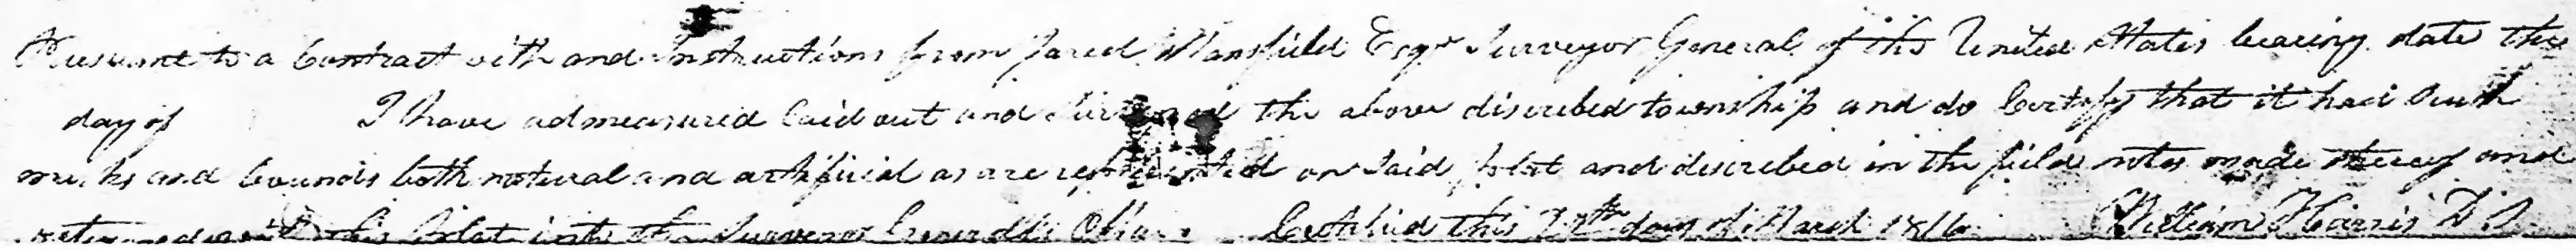 Pursuant to a Contract with and Instructions from Jared Mansfield Esqr Surveyor General of the United States bearing date the
day of I have admeasured laid out and Surveyed the above discribed township and do Certify that it had Such
marks and bounds both natural and artificial as are represented on Said plat and discribed in the field notes made thereof and
returned with this Plat into the Surveyor Generals Office Certified this day of March 1816 William Harris D. S.